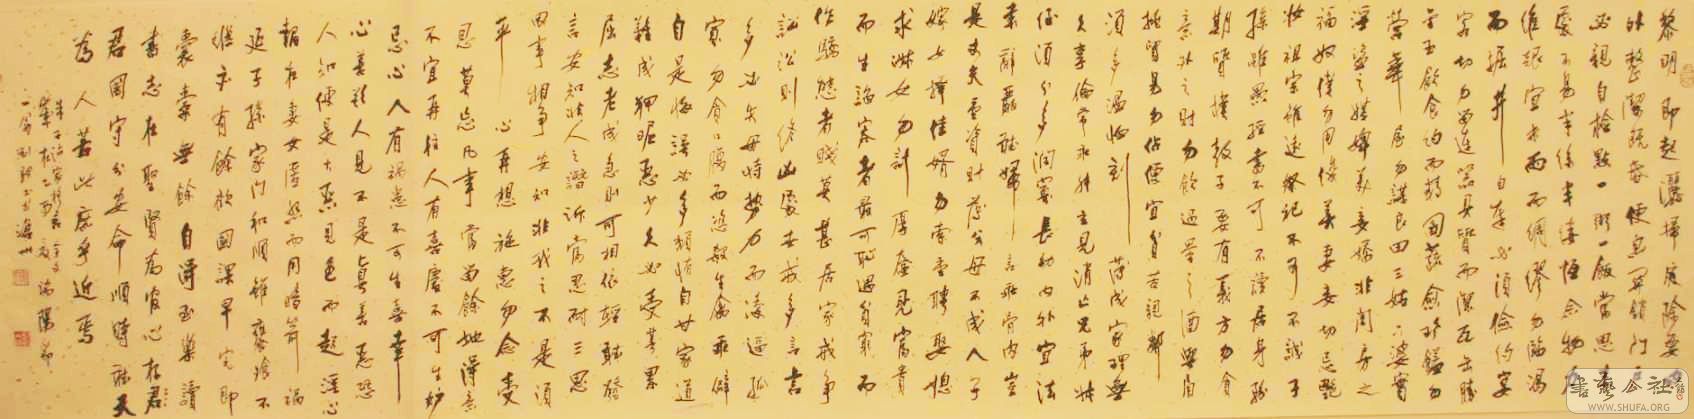 黎明即起灑掃庭除要內
外整潔既昏便息關鎖門戶
必親自檢點一粥一飯當思來
處不易半絲半縷恆念物力
維艱宜未雨而綢繆勿臨渴
而掘井自奉必須儉約宴
客切勿留連器具質而潔瓦缶勝
金玉飲食約而精園蔬愈珍饈勿
營華屋勿謀良田三姑六婆實
淫盜之媒婢美妾嬌非閨房之
福奴僕勿用俊美妻妾切忌艷
妝祖宗雖遠祭祀不可不誠子
孫雖愚經書不可不讀居身務
期質樸教子要有義方勿貪
意外之財勿飲過量之酒與肩
挑貿易勿佔便宜貧苦親鄰
須多溫恤刻薄成家理無
久享倫常乖舛立見消亡兄弟叔
侄須分多潤寡長幼內外宜法
肅辭嚴聽婦言乖骨肉豈
是丈夫重資財薄父母不成人子
嫁女擇佳婿勿索重聘娶媳
求淑女勿計厚奩見富貴
而生諂容者最可恥遇貧窮而
作驕態者賤莫甚居家戒爭
訟訟則終凶處世戒多言言
多必失毋恃勢力而凌逼孤
寡勿貪口腹而恣殺生禽乖僻
自是悔誤必多頹惰自甘家道
難成狎昵惡少久必受其累
屈志老成急則可相依輕聽發
言安知非人之譖訴當忍耐三思
因事相爭安知非我之不是須
平心再想施惠勿念受
恩莫忘凡事當留餘地得意
不宜再往人有喜慶不可生妒
忌心人有禍患不可生喜幸
心善欲人見不是真善惡恐
人知便是大惡見色而起淫心
報在妻女匿怨而用暗箭禍
延子孫家門和順雖饔飧不
繼亦有餘歡國課早完即
囊橐無餘自得至樂讀
書志在聖賢為官心在君
國守分安命順時聽天
為人若此庶乎近焉
朱子治家格言